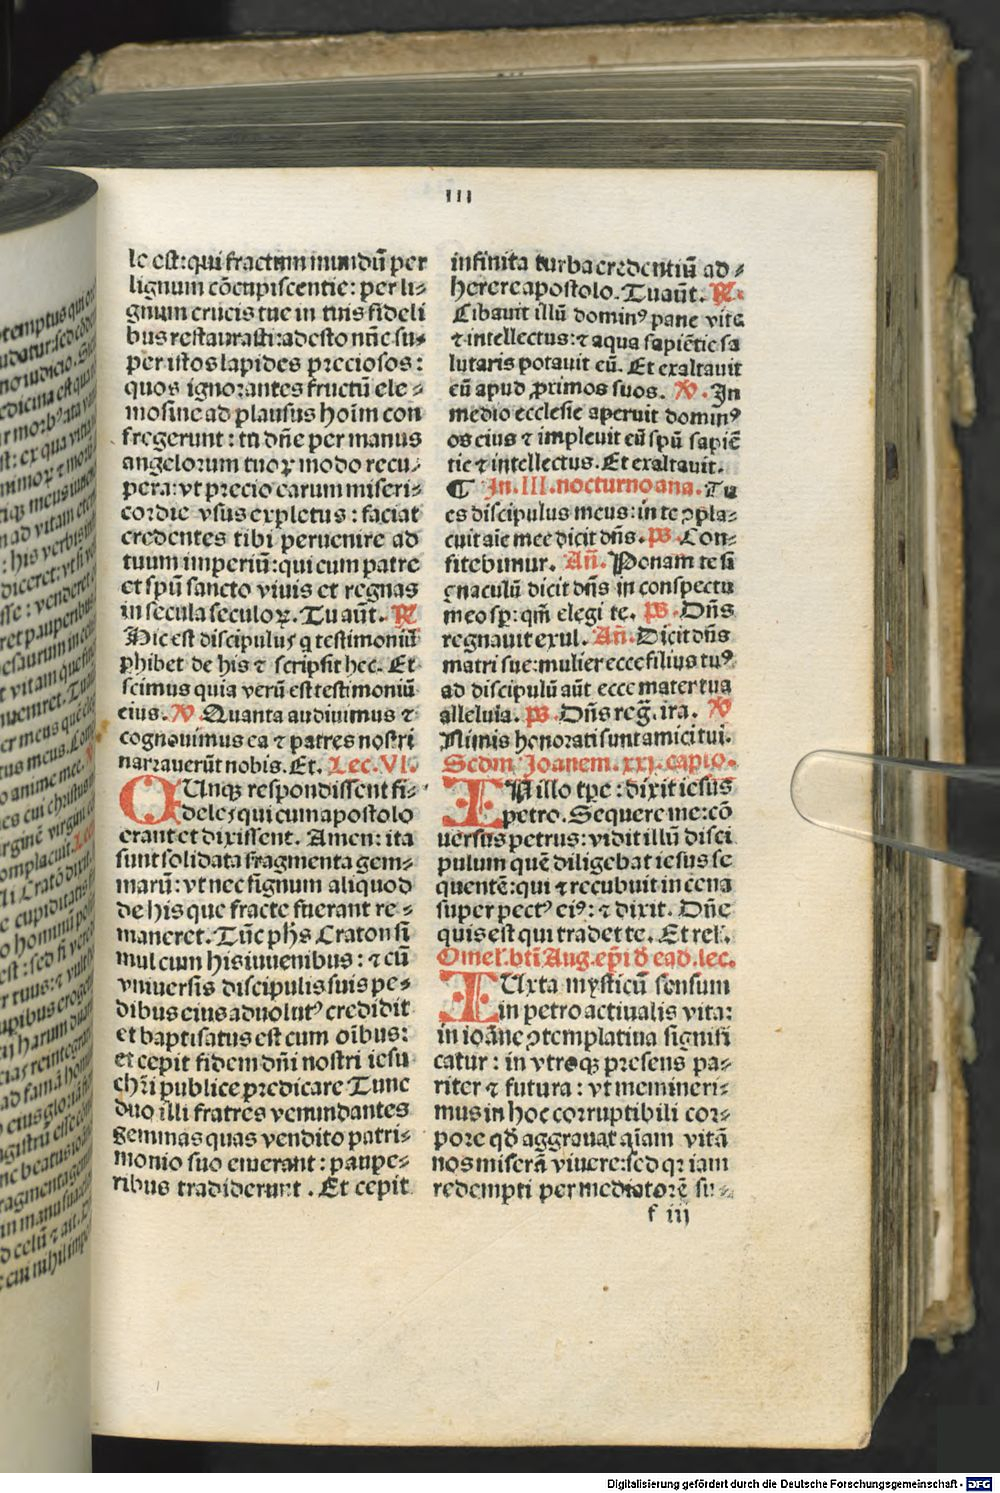 III
le est: qui fractum mundū per
lignum cōcupiscentie: per li-
gnum crucis tue in tuis fideli
bus restaurasti: adesto nūc su-
per istos lapides preciosos:
quos ignorantes fructū ele-
mosine ad plausus hoīm con
fregerunt: tu dn̄e per manus
angelorum tuoꝝ modo recu-
pera: vt precio earum miseri-
cordie vsus expletus: faciat
credentes tibi peruenire ad
tuum imperiū: qui cum patre
et spū sancto viuis et regnas
in secula seculoꝝ. Tu aūt. ℟
Hic est discipulus q testimoniū
phibet de his ⁊ scripsit hec. Et
scimus quia verū est testimoniū
eius. ℣. Quanta audiuimus ⁊
cognouimus ea ⁊ patres nostri
narrauerūt nobis. Et. Lec. VI.
CUnqꝫ respondissent fi-
deles qui cum apostolo
erant et dixissent. Amen: ita
sunt solidata fragmenta gem-
marū: vt nec signum aliquod
de his que fracte fuerant re-
maneret. Tūc phs Craton si
mul cum his iuuenibus: ⁊ cū
vniuersis discipulis suis pe-
dibus eius aduolutꝰ credidit
et baptisatus est cum oībus:
et cepit fidem dn̄i nostri iesu
chr̄i publice predicare Tunc
duo illi fratres venundantes
gemmas quas vendito patri-
monio suo emerant: paupe-
ribus tradiderunt. Et cepit
infinita turba credentiū ad-
herere apostolo. Tu aūt. ℟.
Cibauit illū dominꝰ pane vite
⁊ intellectus: ⁊ aqua sapiētie sa
lutaris potauit eū. Et exaltauit
eū apud ꝓximos suos. ℣. In
medio ecclesie aperuit dominꝰ
os eius ⁊ impleuit eū spū sapiē
tie ⁊ intellectus. Et exaltauit.
¶ In. III. nocturno ana. Tu
es discipulus meus: in te ꝯpla-
cuit aīe mee dicit dn̄s. ps. Con-
fitebimur. An̄. Ponam te si
gnaculū dicit dn̄s in conspectu
meo sp: qm̄ elegi te. ps. Dn̄s
regnauit exul. An̄. Dicit dn̄s
matri sue: mulier ecce filius tuꝰ
ad discipulū aūt ecce mater tua
alleluia. ps. Dn̄s reg̃. ira. ℣
Nimis honorati sunt amici tui.
Scdm Joanem. xxj. capło.
IN illo tpe: dixit iesus
petro. Sequere me: cō
uersus petrus: vidit illū disci
pulum quē diligebat iesus se
quentē: qui ⁊ recubuit in cena
super pectꝰ eiꝰ: ⁊ dixit. Dn̄e
quis est qui tradet te. Et rel.
Omel. bti Aug. ep̄i d̄ ead. lec.
IUxta mysticū sensum
in petro actiualis vita:
in ioāne ꝯtemplatiua signifi
catur: in vtroqꝫ presens pa-
riter ⁊ futura: vt memineri-
mus in hoc corruptibili cor-
pore qd̄ aggrauat aīam vitā
nos miserā viuere: sed qꝛ iam
redempti per mediatorē su-
f iij
Digitalisierung gefördert durch die Deutsche Forschungsgemeinschaft - DFG